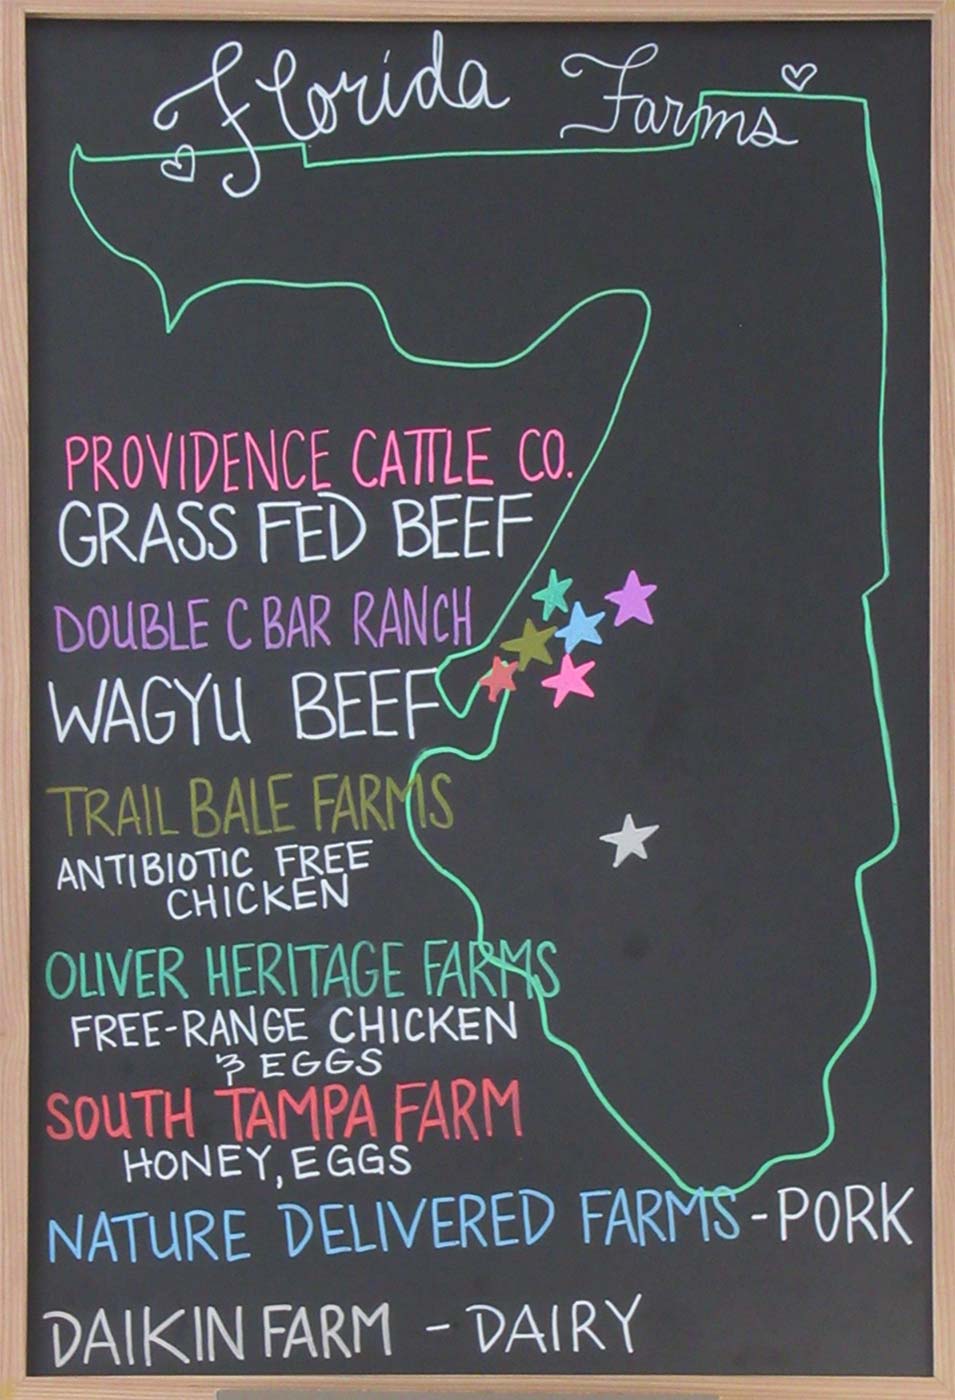 Florida Farms
PROVIDENCE CATTLE CO.
GRASS FED BEEF
DOUBLE C BAR RANCH
WAGYU BEEF
TRAIL BALE FARMS
ANTIBIOTIC FREE
CHICKEN
OLIVER HERITAGE FARMS
FREE-RANGE CHICKEN
& EGGS
SOUTH TAMPA FARM
HONEY, EGGS
NATURE DELIVERED FARMS - PORK
DAIKIN FARM - DAIRY